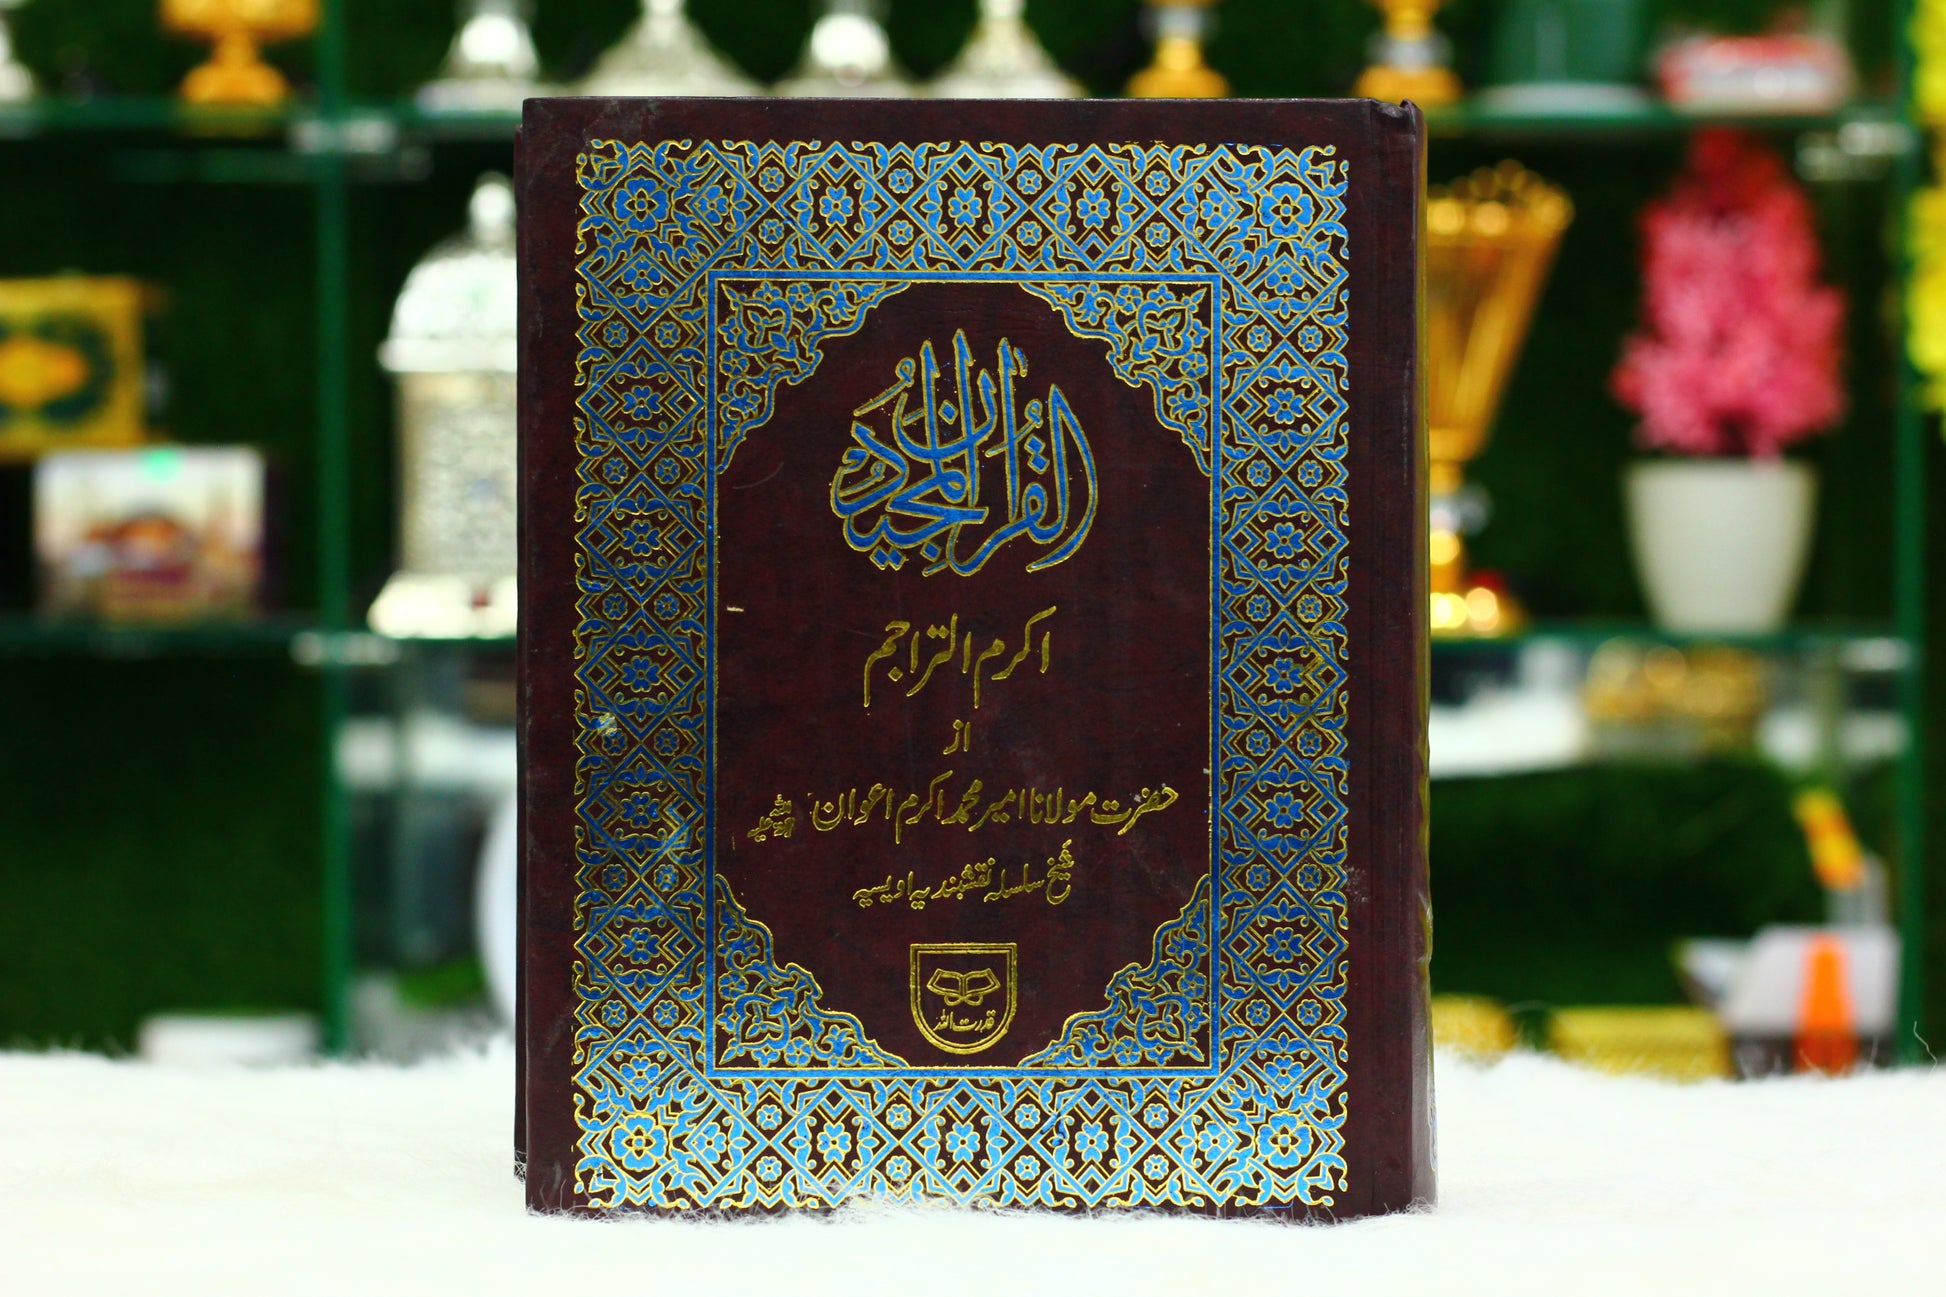 القُرآن المجيدُ
اکرم التراجم
از
حضرت مولانا امیر محمد اکرم اعوان رحمۃ اللہ علیہ
شیخ سلسلہ نقشبندیہ اویسیہ
قدرت اللہ